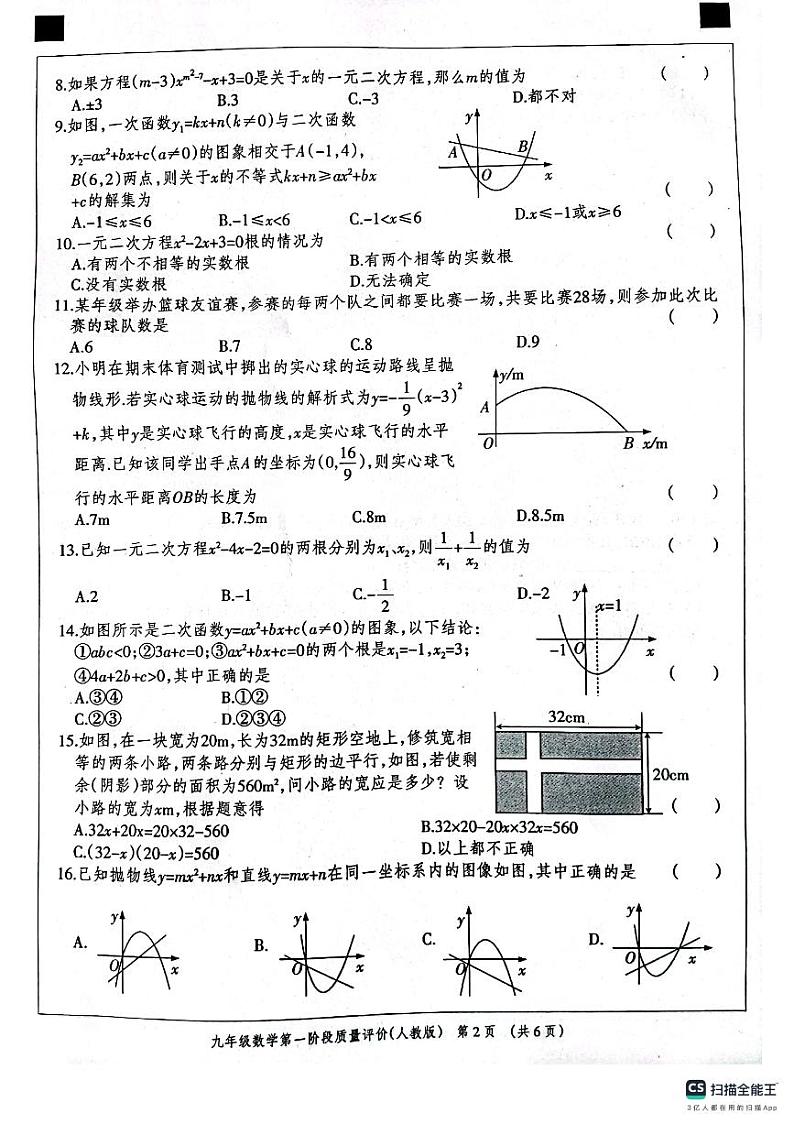 8.如果方程(m-3)x^{m²-7}-x+3=0是关于x的一元二次方程,那么m的值为 ( )
A.±3 B.3 C.-3 D.都不对
9.如图,一次函数y₁=kx+n(k≠0)与二次函数
y₂=ax²+bx+c(a≠0)的图象相交于A(-1,4),
B(6,2)两点,则关于x的不等式kx+n≥ax²+bx
+c的解集为 ( )
A.-1≤x≤6 B.-1≤x<6 C.-1<x≤6 D.x≤-1或x≥6
y
A
B
O
x
10.一元二次方程x²-2x+3=0根的情况为 ( )
A.有两个不相等的实数根 B.有两个相等的实数根
C.没有实数根 D.无法确定
11.某年级举办篮球友谊赛,参赛的每两个队之间都要比赛一场,共要比赛28场,则参加此次比
赛的球队数是 ( )
A.6 B.7 C.8 D.9
12.小明在期末体育测试中掷出的实心球的运动路线呈抛
物线形.若实心球运动的抛物线的解析式为y=-1/9(x-3)²
+k,其中y是实心球飞行的高度,x是实心球飞行的水平
距离.已知该同学出手点A的坐标为(0,16/9),则实心球飞
行的水平距离OB的长度为 ( )
A.7m B.7.5m C.8m D.8.5m
y/m
A
O
B x/m
13.已知一元二次方程x²-4x-2=0的两根分别为x₁、x₂,则1/x₁+1/x₂的值为 ( )
A.2 B.-1 C.-1/2 D.-2
14.如图所示是二次函数y=ax²+bx+c(a≠0)的图象,以下结论:
①abc<0;②3a+c=0;③ax²+bx+c=0的两个根是x₁=-1,x₂=3;
④4a+2b+c>0,其中正确的是 ( )
A.③④ B.①②
C.②③ D.②③④
y
x=1
-1 O
x
15.如图,在一块宽为20m,长为32m的矩形空地上,修筑宽相
等的两条小路,两条路分别与矩形的边平行,如图,若使剩
余(阴影)部分的面积为560m²,问小路的宽应是多少? 设
小路的宽为xm,根据题意得 ( )
A.32x+20x=20×32-560 B.32×20-20x×32x=560
C.(32-x)(20-x)=560 D.以上都不正确
32cm
20cm
16.已知抛物线y=mx²+nx和直线y=mx+n在同一坐标系内的图像如图,其中正确的是 ( )
A. y O x B. y O x C. y O x D. y O x
九年级数学第一阶段质量评价(人教版) 第2页 (共6页)
CS 扫描全能王
3亿人都在用的扫描App